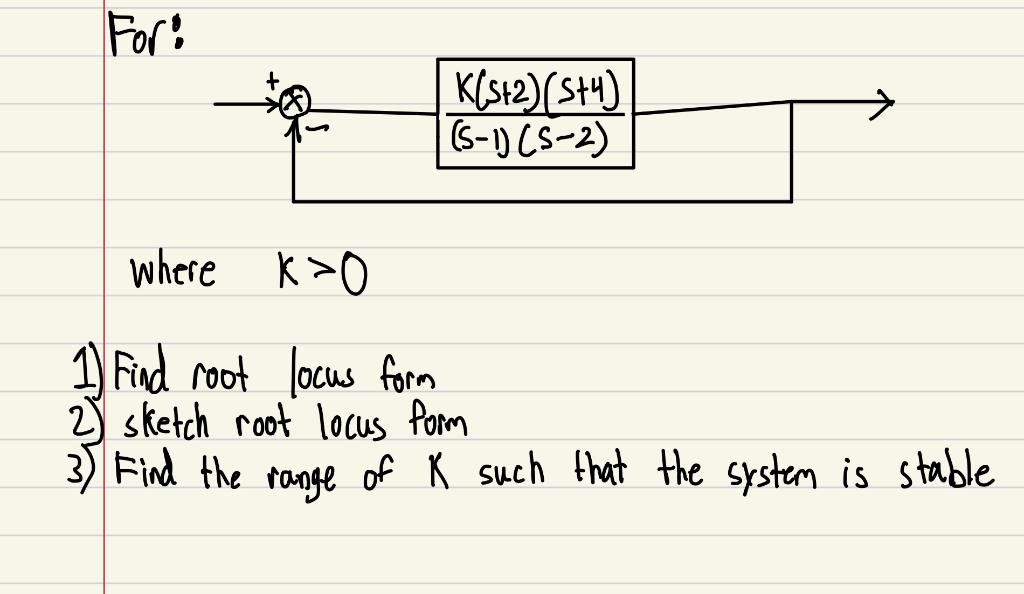 For:
+
K(s+2)(s+4)
(s-1)(s-2)
-
where K>0
1) Find root locus form
2) sketch root locus form
3) Find the range of K such that the system is stable